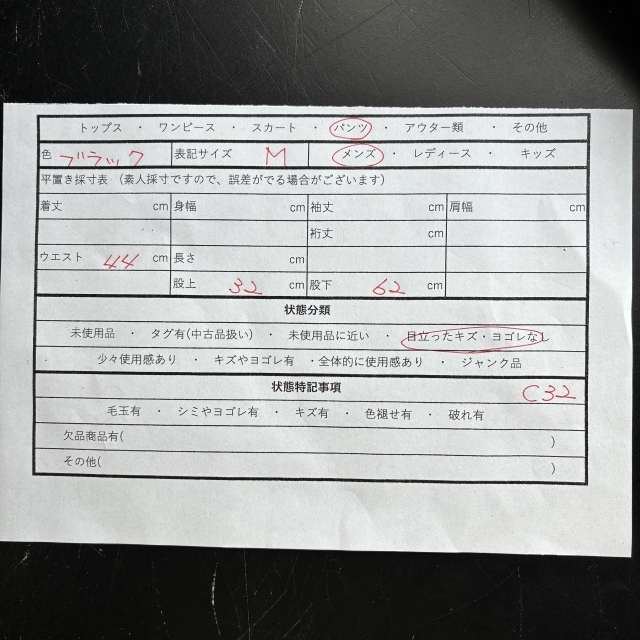 トップス ・ ワンピース ・ スカート ・ パンツ ・ アウター類 ・ その他
色 ブラック 表記サイズ M メンズ ・ レディース ・ キッズ
平置き採寸表 (素人採寸ですので、誤差がでる場合がございます)
着丈 cm 身幅 cm 袖丈 cm 肩幅 cm
裄丈 cm
ウエスト 44 cm 長さ cm
股上 32 cm 股下 62 cm
状態分類
未使用品 ・ タグ有(中古品扱い) ・ 未使用品に近い ・ 目立ったキズ・ヨゴレなし
少々使用感あり ・ キズやヨゴレ有 ・全体的に使用感あり ・ ジャンク品
状態特記事項 C32
毛玉有 ・ シミやヨゴレ有 ・ キズ有 ・ 色褪せ有 ・ 破れ有
欠品商品有( )
その他( )